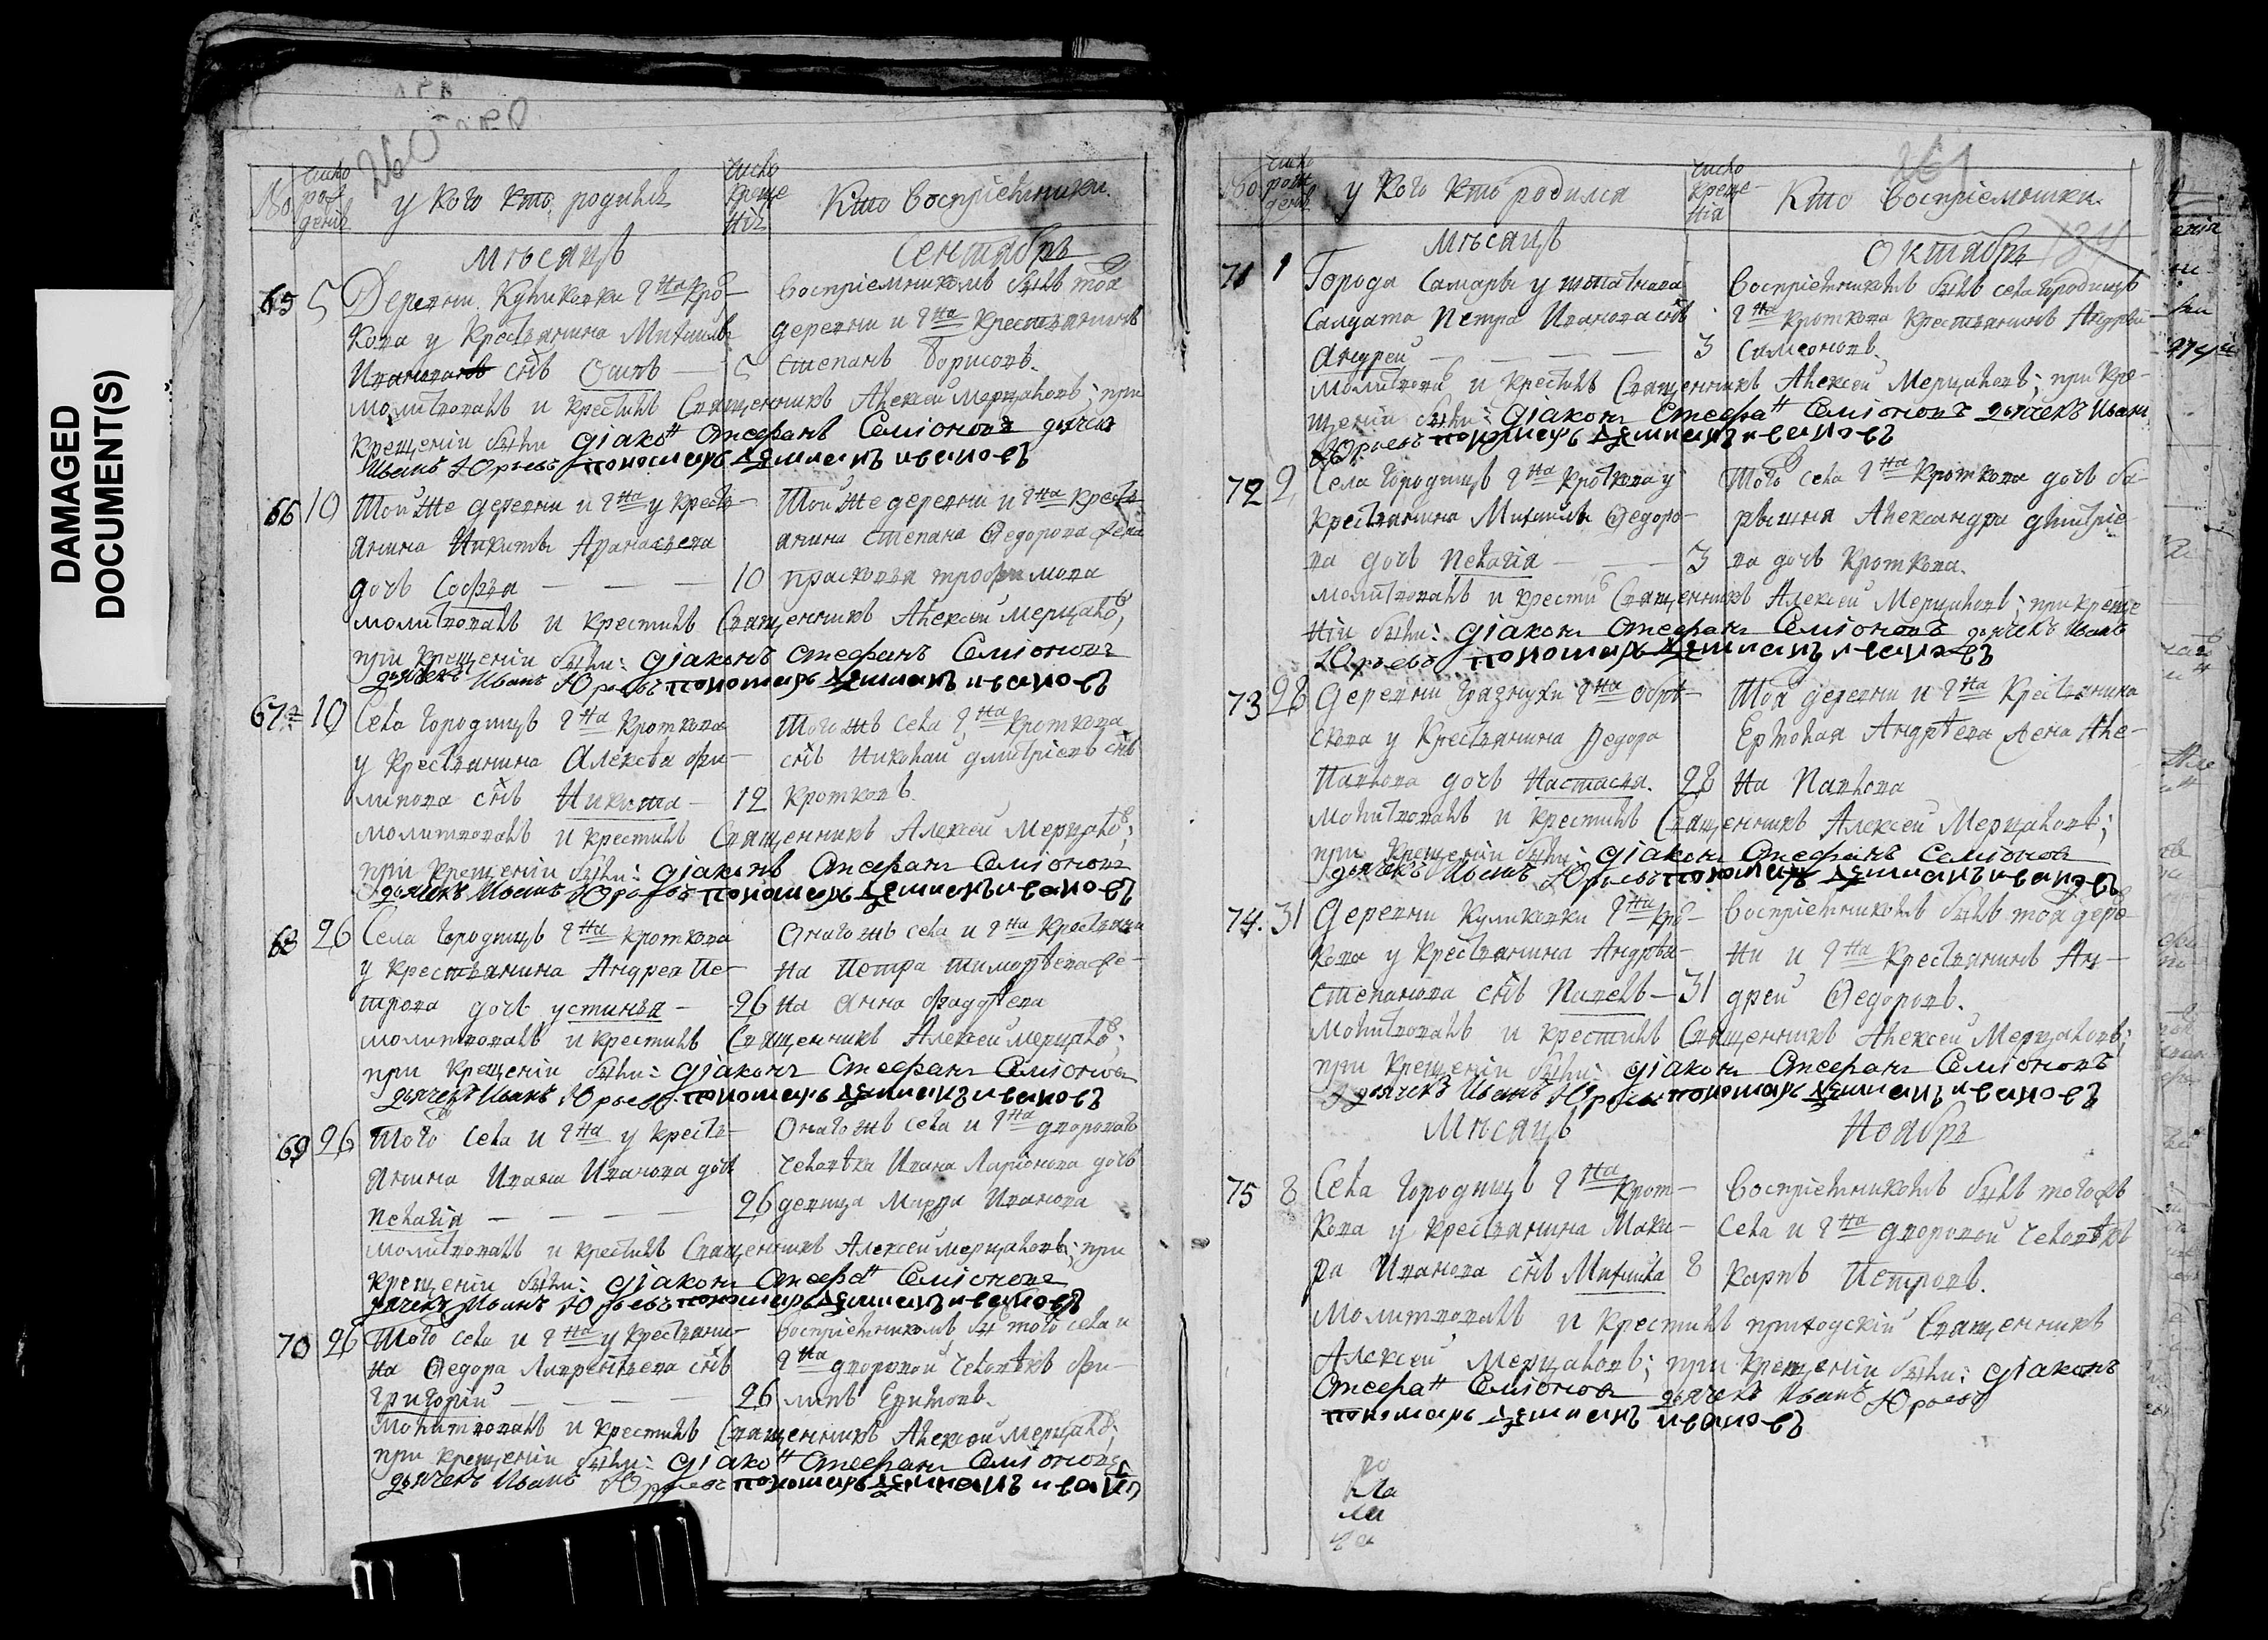 DAMAGED
DOCUMENT(S)
260
№
число рож деніѧ
у кого кто родился
число креще нія
Кто восприемники.
Мѣсяцъ
Сентябрь
65 5 Деревни Куликовки гна Кро-
кова у крестьянина Михаила
Иванова снъ Осипъ — 5
восприемникомъ былъ тоя
деревни и гна крестьянинъ
Степанъ Борисовъ.
молитвовалъ и крестилъ Священникъ Алексей Мерцаловъ; при
крещеніи были діаконъ Стефанъ Семіоновъ дьячекъ
Иванъ Юрьевъ пономарь Демианъ Ивановъ
66 10 Той же деревни и гна у кресть-
янина Никиты Афанасьева
дочь Софья — — — 10
Той же деревни и гна кресть-
янина Степана Федорова жена
Прасковья Трофимова
молитвовалъ и крестилъ Священникъ Алексей Мерцаловъ,
при крещеніи были: діаконъ Стефанъ Семіоновъ
дьячекъ Иванъ Юрьевъ пономарь Демианъ Ивановъ
67 10 Села Городищъ гна Кроткова
у крестьянина Алексѣя Фи-
липова снъ Никита — 12
Того жъ села гна Кроткова
снъ Николай Дмитріевъ снъ
Кротковъ.
молитвовалъ и крестилъ Священникъ Алексей Мерцаловъ;
при крещеніи были: діаконъ Стефанъ Семіоновъ
дьячекъ Иванъ Юрьевъ пономарь Демианъ Ивановъ
68 26 Села Городищъ гна Кроткова
у крестьянина Андрея Пе-
трова дочь Устинья — 26
Онаго жъ села и гна крестьяни
на Петра Тимофѣева же-
на Анна Фаддѣева
молитвовалъ и крестилъ Священникъ Алексей Мерцаловъ;
при крещеніи были: діаконъ Стефанъ Семіоновъ
дьячекъ Иванъ Юрьевъ пономарь Демианъ Ивановъ
69 26 Того села и гна у кресть-
янина Ивана Иванова дочь
Пелагія — — — 26
Онаго жъ села и гна двороваго
человѣка Ивана Ларіонова дочь
девица Марья Иванова
молитвовалъ и крестилъ Священникъ Алексей Мерцаловъ; при
крещеніи были: діаконъ Стефанъ Семіоновъ
дьячекъ Иванъ Юрьевъ пономарь Демианъ Ивановъ
70 26 Того села и гна у крестьяни-
на Федора Лаврентьева снъ
Григорій — — 26
восприемникомъ бы того села и
гна дворовой человѣкъ Фи-
липъ Ефимовъ.
молитвовалъ и крестилъ Священникъ Алексей Мерцаловъ;
при крещеніи были: діаконъ Стефанъ Семіоновъ
дьячекъ Иванъ Юрьевъ пономарь Демианъ Ивановъ
261
134
№
число рож денія
у кого кто родился
число креще- нія
Кто восприемники.
Мѣсяцъ
Октябрь
71 1 Города Самары у штатнаго
салдата Петра Иванова снъ
Андрей — — — 3
восприемникомъ былъ села Городищъ
гна Кроткова крестьянинъ Андрей
Симеоновъ.
молитвовалъ и крестилъ Священникъ Алексей Мерцаловъ; при кре-
щеніи были: діаконъ Стефанъ Семіоновъ дьячекъ Иванъ
Юрьевъ пономарь Демианъ Ивановъ
72 2 Села Городищъ гна Кроткова у
крестьянина Михаила Федоро-
ва дочь Пелагія — 3
Того села гна Кроткова дочь ба-
рышня Александра Дмитріе
ва дочь Кроткова.
молитвовалъ и крестилъ Священникъ Алексей Мерцаловъ; при креще
ніи были: діаконъ Стефанъ Семіоновъ дьячекъ Иванъ
Юрьевъ пономарь Демианъ Ивановъ
73 28 Деревни Грязнухи гна Обрѣ-
скова у крестьянина Федора
Павлова дочь Настасья. 28
Тоя деревни и гна крестьянина
Ермолая Андрѣева жена Але-
на Павлова
молитвовалъ и крестилъ Священникъ Алексей Мерцаловъ;
при крещеніи были: діаконъ Стефанъ Семіоновъ
дьячекъ Иванъ Юрьевъ пономарь Демианъ Ивановъ
74. 31 Деревни Куликовки гна Кро-
кова у крестьянина Андрѣя
Степанова снъ Павелъ — 31
восприемникомъ былъ тоя дерев-
ни и гна крестьянинъ Ан-
дрей Федоровъ.
молитвовалъ и крестилъ Священникъ Алексей Мерцаловъ;
при крещеніи были: діаконъ Стефанъ Семіоновъ
дьячекъ Иванъ Юрьевъ пономарь Демианъ Ивановъ
Мѣсяцъ
Ноябрь
75 8 Села Городищъ гна Крот-
кова у крестьянина Мака-
ра Иванова снъ Михаила 8
восприемникомъ былъ того жъ
села и гна дворовой человѣкъ
Карпъ Петровъ.
Молитвовалъ и крестилъ приходскій Священникъ
Алексей Мерцаловъ; при крещеніи были: діаконъ
Стефанъ Семіоновъ дьячекъ Иванъ Юрьевъ
пономарь Демианъ Ивановъ